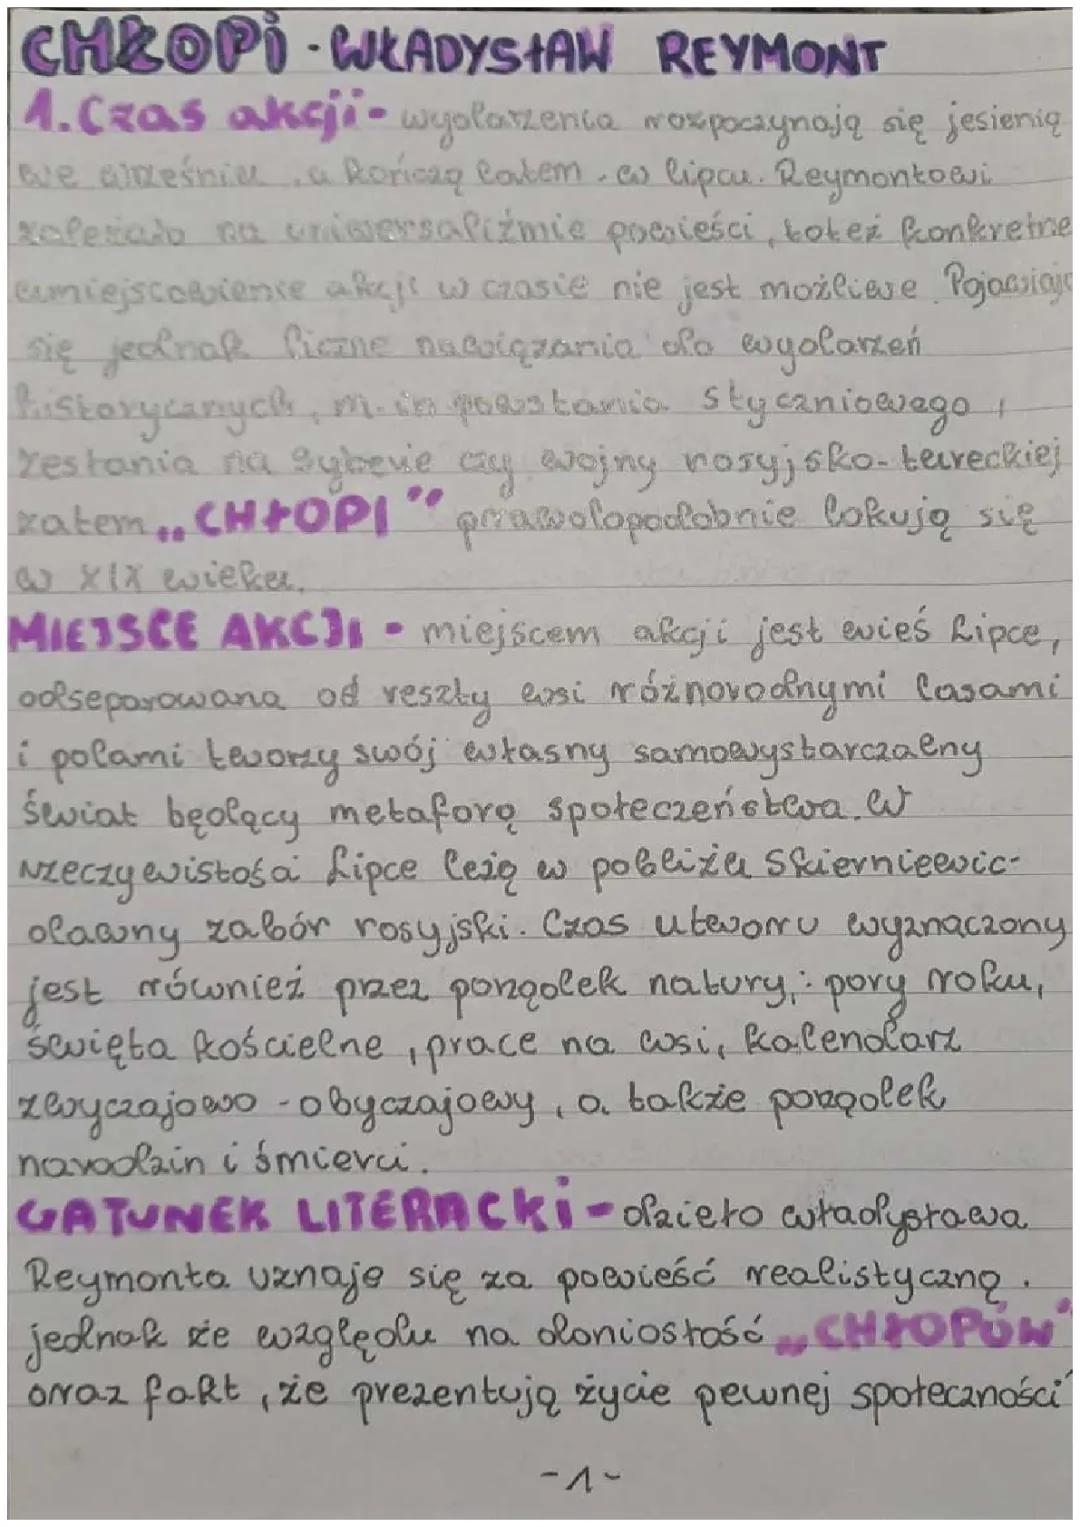 CHŁOPi - WŁADYSŁAW REYMONT
1. Czas akcji - wydarzenia rozpoczynają się jesienią
we wrześniu, a kończą latem - w lipcu. Reymontowi
zależało na uniwersaliźmie powieści, toteż konkretne
umiejscowienie akcji w czasie nie jest możliwe. Pojawiają
się jednak liczne nawiązania do wydarzeń
historycznych, m.in powstania styczniowego,
zesłania na Syberie czy wojny rosyjsko-tureckiej
zatem „CHŁOPI" prawdopodobnie lokują się
w XIX wieku.
MIEJSCE AKCJI - miejscem akcji jest wieś Lipce,
odseparowana od reszty wsi różnorodnymi lasami
i polami tworzy swój własny samowystarczalny
świat będący metaforą społeczeństwa. W
rzeczywistości Lipce leżą w pobliżu Skierniewic-
dawny zabór rosyjski. Czas utworu wyznaczony
jest również przez porządek natury,: pory roku,
święta kościelne, prace na wsi, kalendarz
zwyczajowo - obyczajowy, a także porządek
narodzin i śmierci.
GATUNEK LITERACKi - dzieło Władysława
Reymonta uznaje się za powieść realistyczną.
jednak ze względu na doniosłość „CHŁOPÓW"
oraz fakt, że prezentują życie pewnej społeczności
-1-